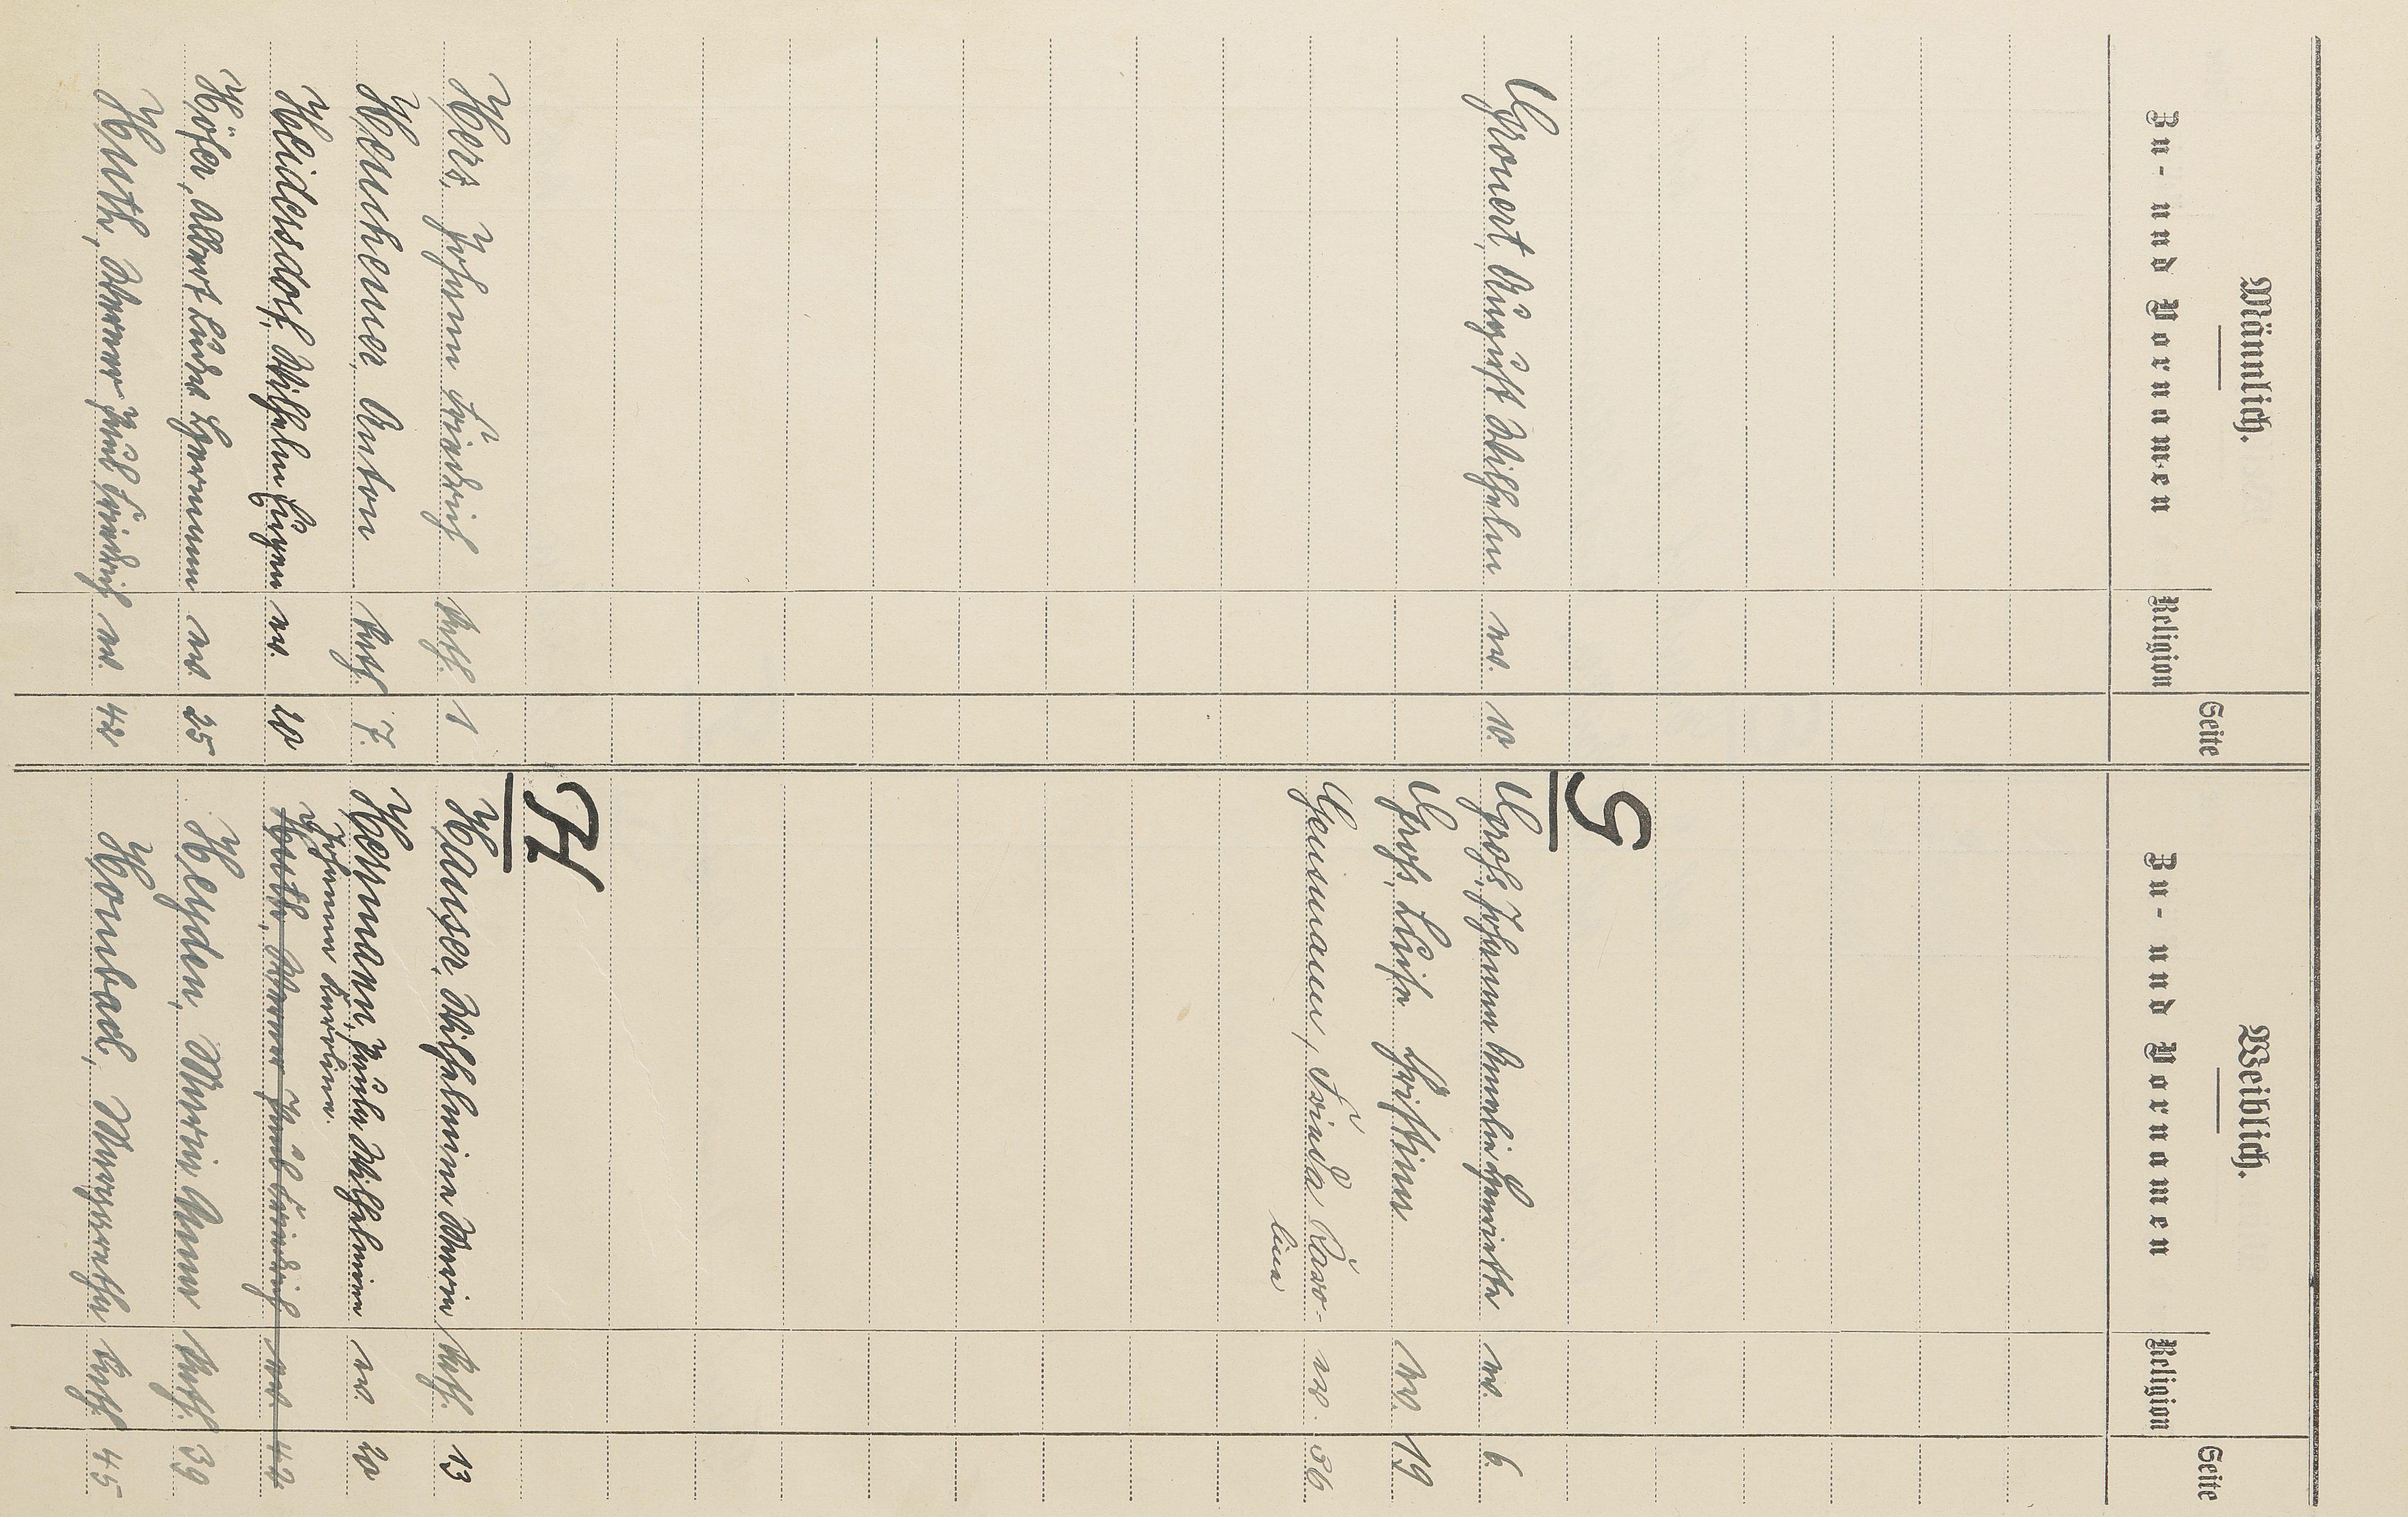 Männlich.
Zu- und Vornamen Religion Seite
Weiblich.
Zu- und Vornamen Religion Seite
G
Gronert, August Wilhelm ev. 10.
Groß, Johanna Amalie Henriette ev. 6.
Groß, Luise Christine ev. 19.
Geismann, Frieda Karo-
lina ev. 36
H
Herz, Johann Friedrich kath. 1
Hauser, Wilhelmine Maria kath. 13
Heuchemer, Anton kath. 7.
Hermann, Paula Wilhelmine ev. 20
Johanna Karoline.
Heidersdorf, Wilhelm Eugen ev. 20
Huth, Werner Paul Friedrich ev. 42
Höfer, Albert Ludw. Hermann ev. 25
Heyden, Maria Anna kath. 39
Huth, Werner Paul Friedrich ev. 42
Hombach, Margaretha kath. 45